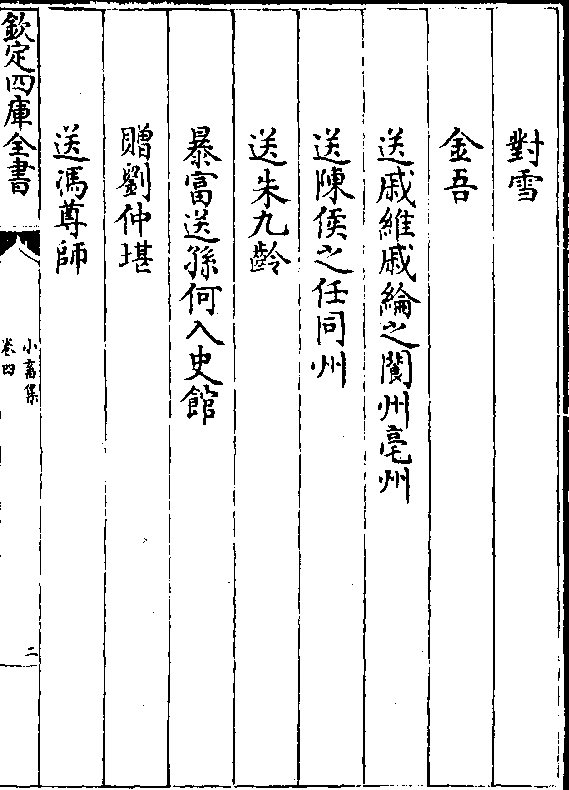 對雪
金吾
送戚維戚綸之閬州亳州
送陳侯之任同州
送朱九齡
暴富送孫何入史館
贈劉仲堪
送馮尊師
欽定四庫全書
小畜集
卷四
二